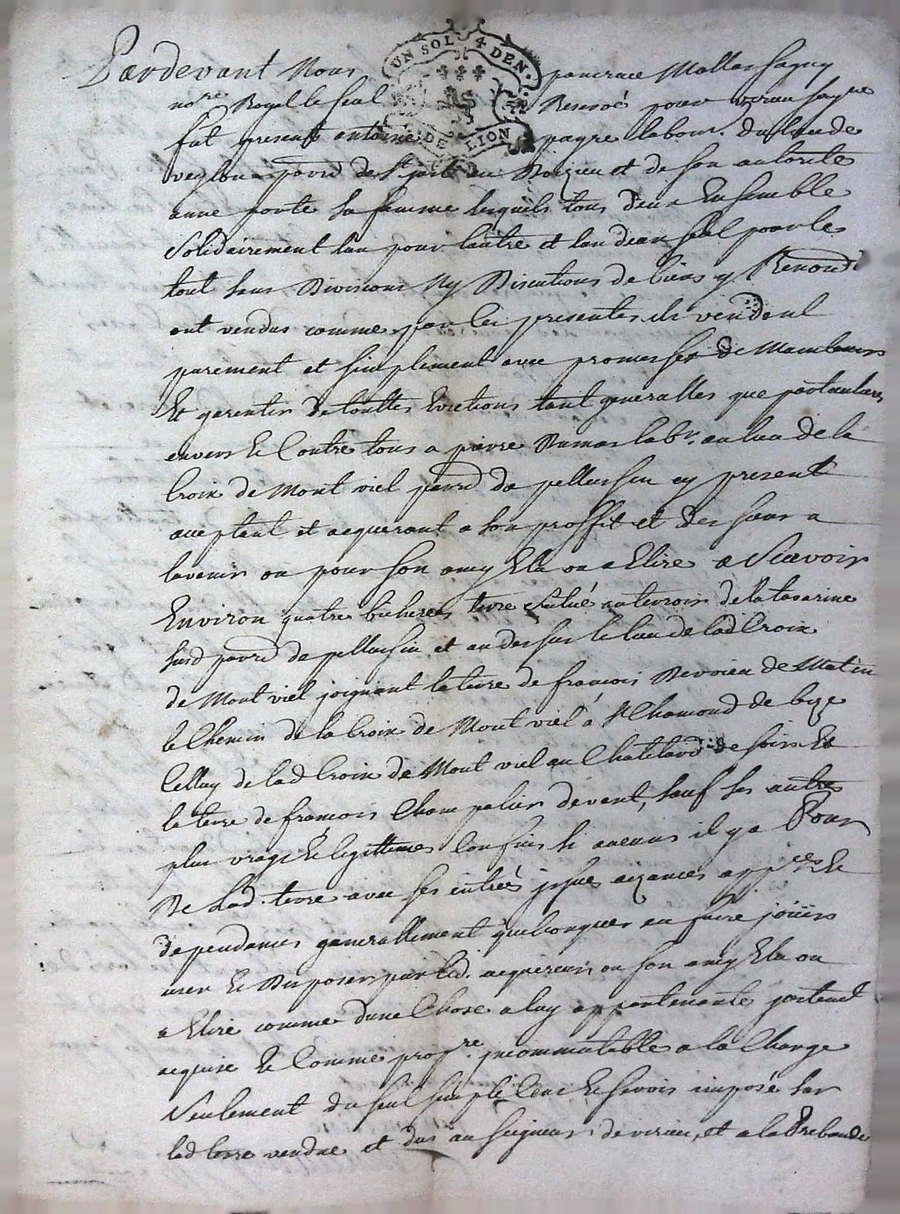 Pardevant Nous pancrace Mallassagny
no.re Royal le seal Reservé pour virieu soug.ne
UN SOL 4 DEN.
G. DE LION
fut present antoine pagre labour. du lieu de
veylon parr.d de St just en Doizieu et de son autorité
anne porte sa femme lesquels tous deux Ensemble
Solidairement lun pour lautre et lun deux seul pour le
tout sans Divisions Ny Discutions de biens y Renond.t
ont vendus comme par les presentes ils vendent
purement et simplement avec promesses de Maintenir
Et garentir de touttes Evictions tant generalles que particulieres
envers Et Contre tous a pierre Dumas lab.r au lieu de la
Croix de Mont viel parr.d de pellussin cy present
acceptant et acquerant a son proffit et des siens a
lavenir ou pour son amy Elu ou a Elire a Scavoir
Environ quatre bicherés terre scitué au terroir de la tasarine
susd parr.d de pellussin et au dessus le lieu de lad Croix
de Mont viel joignant la terre de francois Revoieu de Matin
le Chemin de la Croix de Mont viel à St Chamond de bize
Celluy de lad Croix de Mont viel au Chatelard de soir Et
la terre de francois Champalier de vent, sauf ses autres
plus vrays Et legittimes Confins si aucuns il y a Pour
De Lad. terre avec ses entrées jssues aizances app.ces Et
dependances generallement quelconques en faire joüir
user Et Disposer par led. acquereur ou son amy Elu ou
a Elire comme dune Chose a luy appartenante justement
acquise Et Comme prop.re jncommutable a la Charge
Seulement du seul simple Cenc Et servis imposé sur
lad terre vendue et dus au seigneur de virieu, et a la Prebande